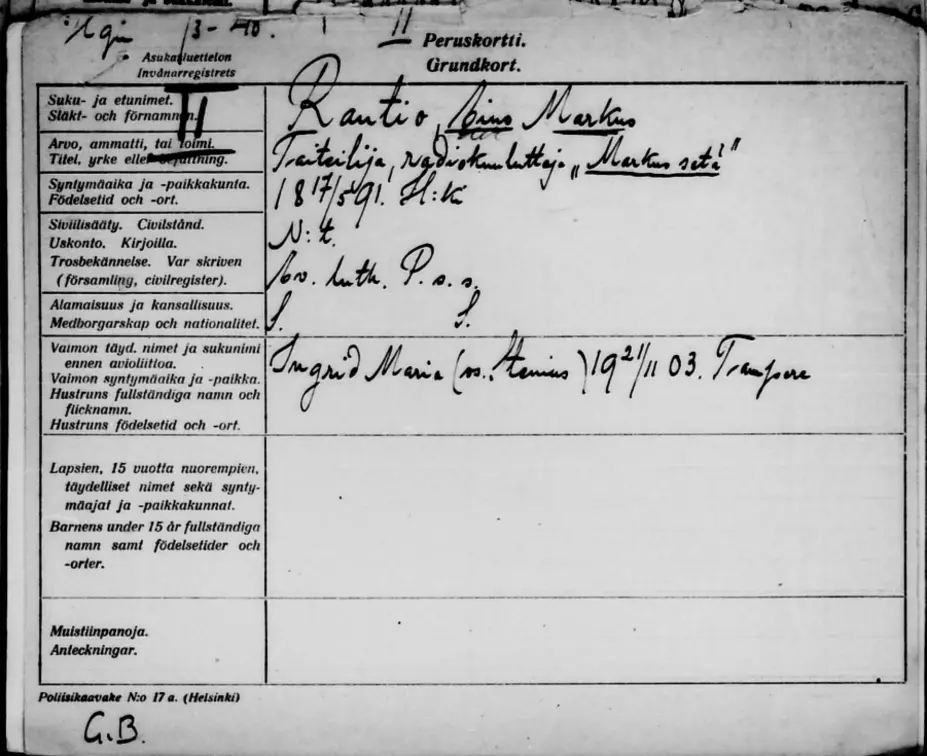 /3-40. II
Peruskortti.
Grundkort.
Asukasluettelon
Invånarregistrets
II
Suku- ja etunimet.
Släkt- och förnamnen.
Rautio, Eino Markus
Arvo, ammatti, tai toimi.
Titel, yrke eller befattning.
Taiteilija, radiokuuluttaja, "Markus setä"
Syntymäaika ja -paikkakunta.
Födelsetid och -ort.
18 17/5 91. H:ki
Siviilisääty. Civilstånd.
Uskonto. Kirjoilla.
Trosbekännelse. Var skriven
(församling, civilregister).
N:t.
Ev. luth. P. s. s.
Alamaisuus ja kansallisuus.
Medborgarskap och nationalitet.
S. S.
Vaimon täyd. nimet ja sukunimi
ennen avioliittoa.
Vaimon syntymäaika ja -paikka.
Hustruns fullständiga namn och
flicknamn.
Hustruns födelsetid och -ort.
Ingrid Maria (os. Stenius) 19 21/11 03. Tampere
Lapsien, 15 vuotta nuorempien,
täydelliset nimet sekä synty-
mäajat ja -paikkakunnat.
Barnens under 15 år fullständiga
namn samt födelsetider och
-orter.
Muistiinpanoja.
Anteckningar.
Poliisikaavake N:o 17 a. (Helsinki)
G.B.